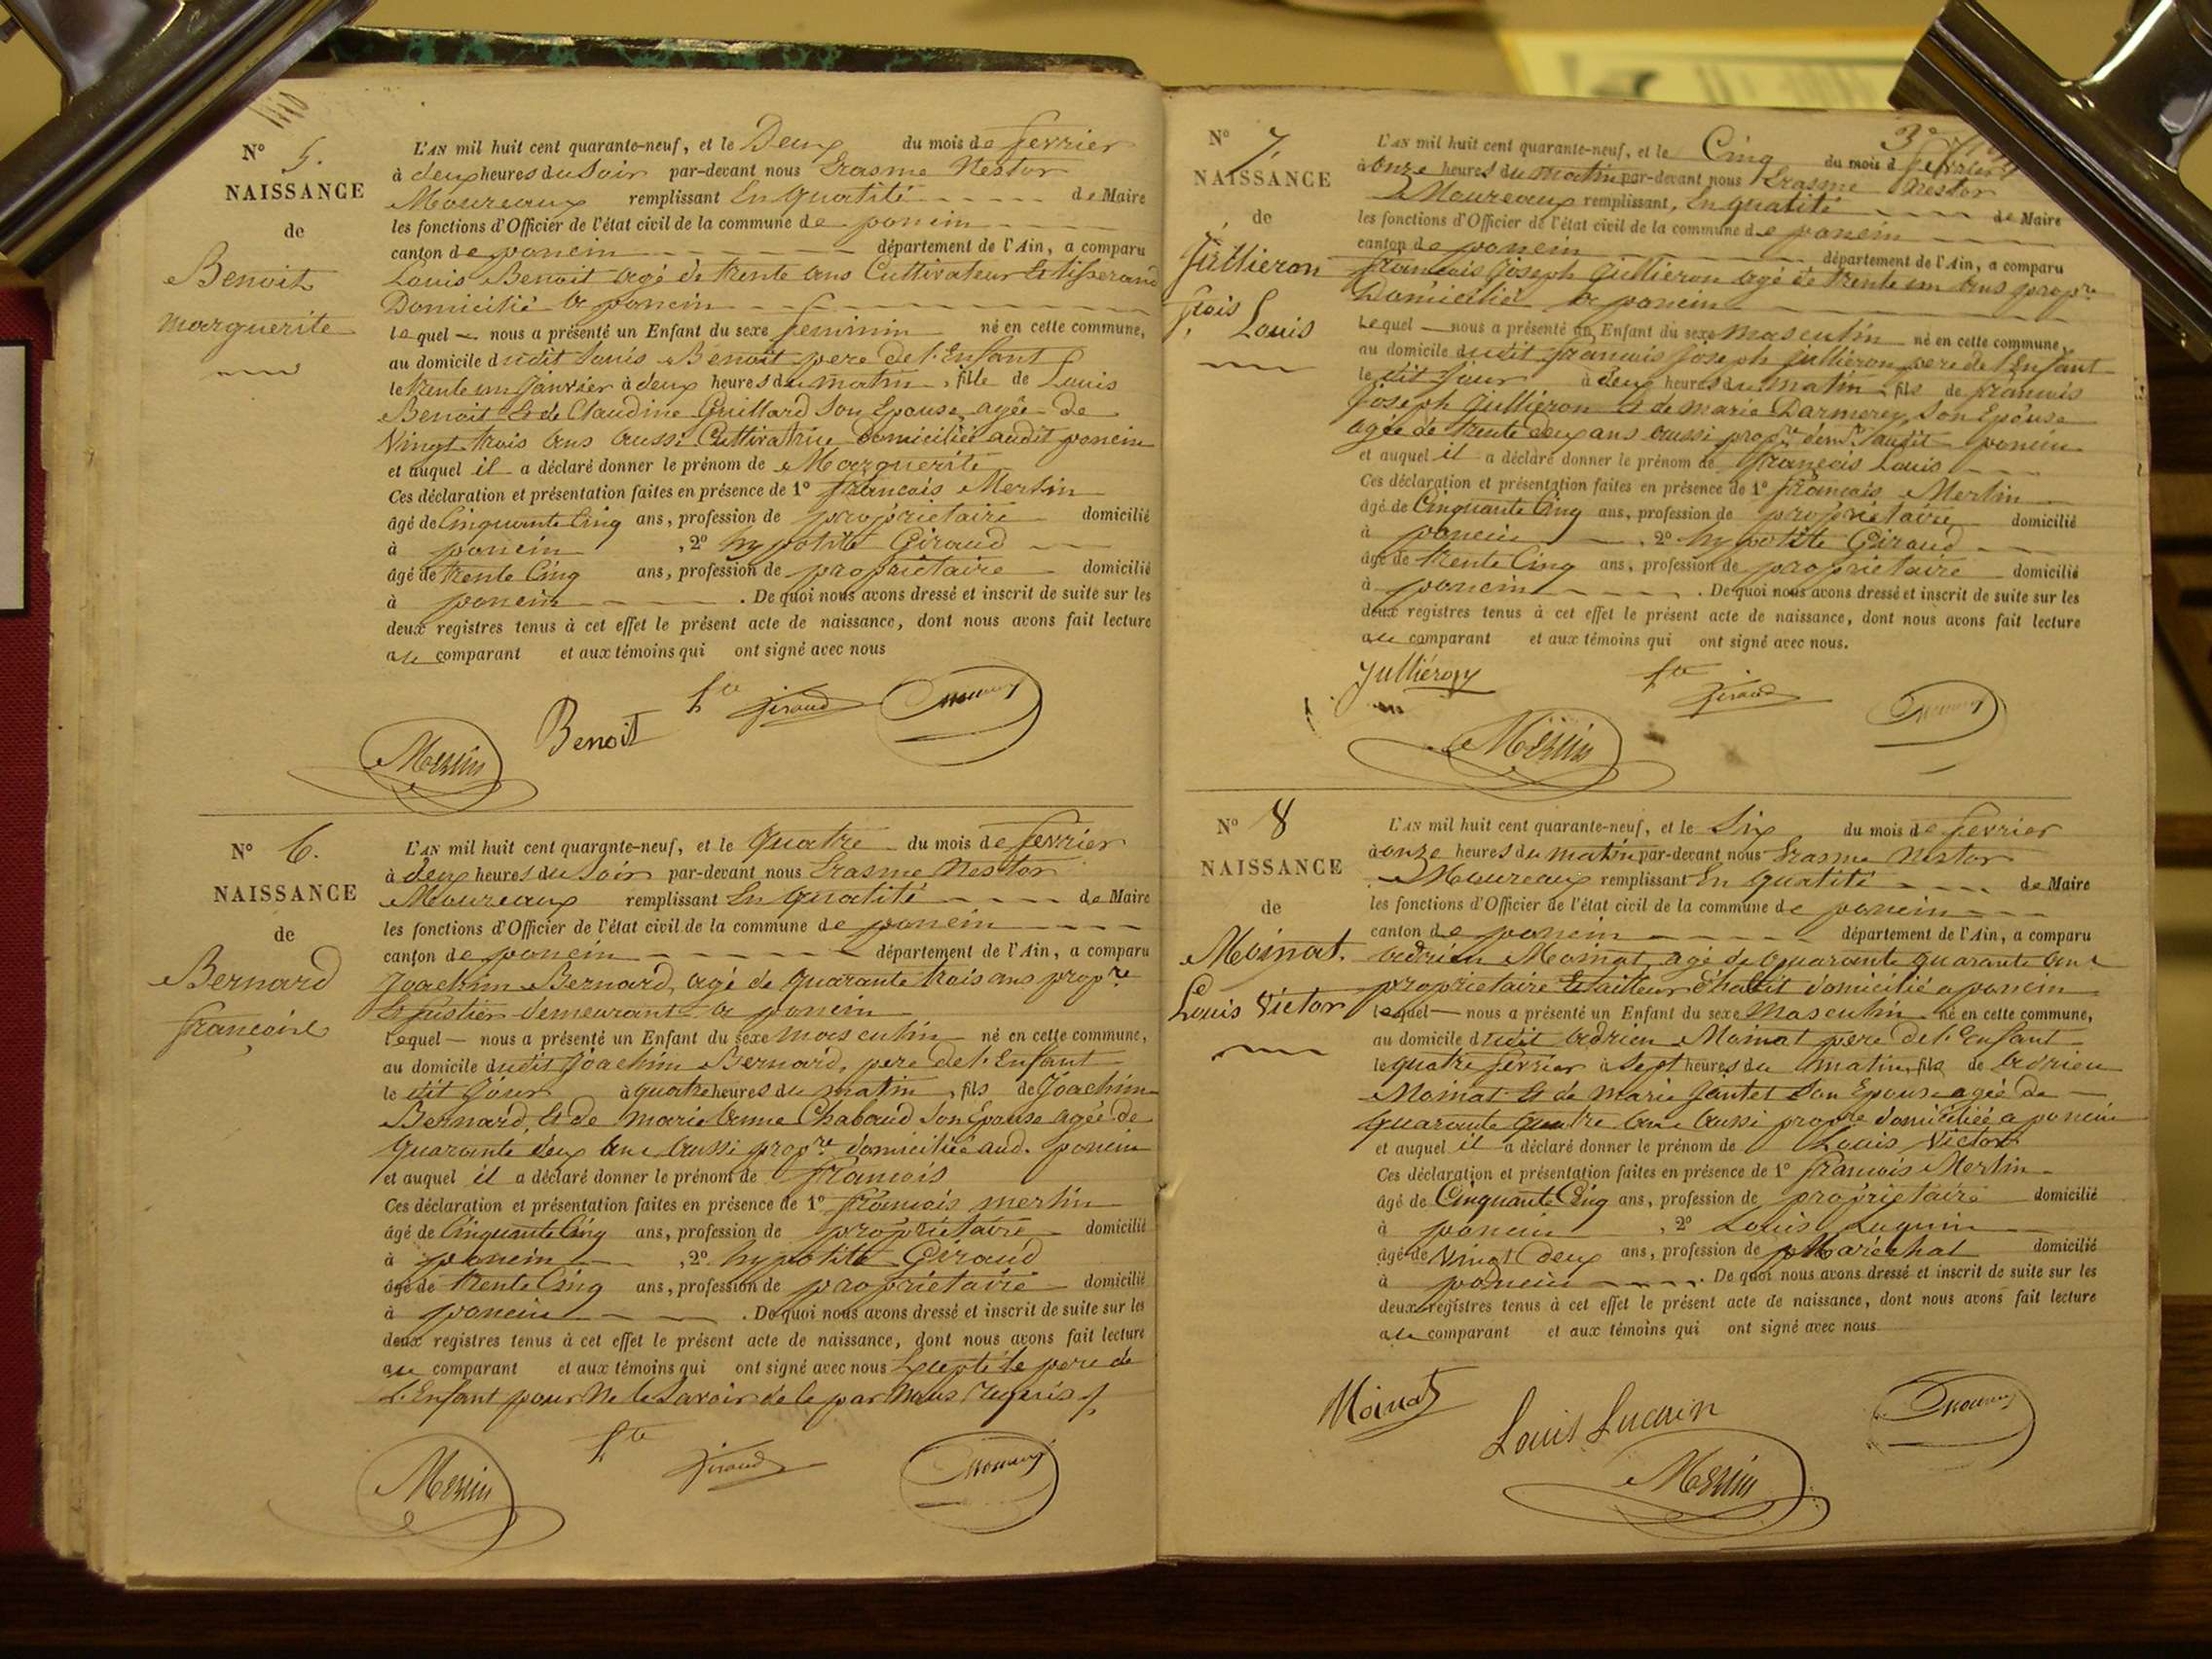 N° 5.
NAISSANCE
de
Benoit
Marguerite
L'AN mil huit cent quarante-neuf, et le Deux du mois de fevrier
à deux heures du Soir par-devant nous Erasme Nestor
Moureaux remplissant En qualité de Maire
les fonctions d'Officier de l'état civil de la commune de poncin
canton de poncin département de l'Ain, a comparu
Louis Benoit agé de trente ans Cultivateur Et tisserand
Domicilié a poncin
lequel nous a présenté un Enfant du sexe feminin né en cette commune,
au domicile dudit Louis Benoit pere de l'Enfant
le trente un janvier à deux heures du matin, fille de Louis
Benoit Et de Claudine Guillard Son Epouse agée de
Vingt trois ans aussi Cultivatrice domiciliée audit poncin
et auquel il a déclaré donner le prénom de Marguerite
Ces déclaration et présentation faites en présence de 1° francois Merlin
âgé de Cinquante Cinq ans, profession de proprietaire domicilié
à poncin, 2° hypolite Giraud
âgé de trente Cinq ans, profession de proprietaire domicilié
à poncin. De quoi nous avons dressé et inscrit de suite sur les
deux registres tenus à cet effet le présent acte de naissance, dont nous avons fait lecture
au comparant et aux témoins qui ont signé avec nous
Benoit hte Giraud Moureaux
Merlin
N° 6.
NAISSANCE
de
Bernard
francois
L'AN mil huit cent quarante-neuf, et le quatre du mois de fevrier
à deux heures du Soir par-devant nous Erasme Nestor
Moureaux remplissant En qualité de Maire
les fonctions d'Officier de l'état civil de la commune de poncin
canton de poncin département de l'Ain, a comparu
Joachim Bernard, agé de quarante trois ans propre
Et fustier demeurant a poncin
lequel nous a présenté un Enfant du sexe masculin né en cette commune,
au domicile dudit Joachim Bernard, pere de l'Enfant
le dit jour à quatre heures du matin, fils de Joachim
Bernard, Et de marie anne Chabaud Son Epouse agée de
quarante deux ans aussi propre domiciliée aud. poncin
et auquel il a déclaré donner le prénom de francois
Ces déclaration et présentation faites en présence de 1° francois merlin
âgé de Cinquante Cinq ans, profession de proprietaire domicilié
à poncin, 2° hypolite Giraud
âgé de trente Cinq ans, profession de proprietaire domicilié
à poncin. De quoi nous avons dressé et inscrit de suite sur les
deux registres tenus à cet effet le présent acte de naissance, dont nous avons fait lecture
au comparant et aux témoins qui ont signé avec nous Excepté le pere de
l'Enfant pour Ne le Savoir de ce par Nous requis
Merlin hte Giraud Moureaux
N° 7.
NAISSANCE
de
Jullieron
fcois Louis
L'AN mil huit cent quarante-neuf, et le Cinq du mois d fevrier
à onze heures du matin par-devant nous Erasme Nestor
Moureaux remplissant, En qualité de Maire
les fonctions d'Officier de l'état civil de la commune de poncin
canton de poncin département de l'Ain, a comparu
francois Joseph Jullieron agé de trente un ans propre
Domicilié a poncin
lequel nous a présenté un Enfant du sexe masculin né en cette commune,
au domicile dudit francois Joseph Jullieron pere de l'Enfant
le dit jour à deux heures du matin, fils de francois
Joseph Jullieron Et de marie Darmerey, Son Epouse
agée de trente deux ans aussi propre demt audit poncin
et auquel il a déclaré donner le prénom de francois Louis
Ces déclaration et présentation faites en présence de 1° francois Merlin
âgé de Cinquante Cinq ans, profession de proprietaire domicilié
à poncin, 2° hypolite Giraud
âgé de trente Cinq ans, profession de proprietaire domicilié
à poncin. De quoi nous avons dressé et inscrit de suite sur les
deux registres tenus à cet effet le présent acte de naissance, dont nous avons fait lecture
au comparant et aux témoins qui ont signé avec nous.
Julliéron hte Giraud Moureaux
Merlin
N° 8
NAISSANCE
de
Moinat.
Louis Victor
L'AN mil huit cent quarante-neuf, et le Six du mois de fevrier
à onze heures du matin par-devant nous Erasme Nestor
Moureaux remplissant En qualité de Maire
les fonctions d'Officier de l'état civil de la commune de poncin
canton de poncin département de l'Ain, a comparu
adrien Moinat, agé de quarante quarante ans
proprietaire Et tailleur d'habit domicilié a poncin
lequel nous a présenté un Enfant du sexe Masculin né en cette commune,
au domicile dudit adrien Moinat pere de l'Enfant
le quatre fevrier à Sept heures du matin, fils de adrien
Moinat Et de marie Jantet Son Epouse agée de
quarante quatre ans aussi propre domiciliée a poncin
et auquel il a déclaré donner le prénom de Louis Victor
Ces déclaration et présentation faites en présence de 1° francois Merlin
âgé de Cinquante Cinq ans, profession de proprietaire domicilié
à poncin, 2° Louis Luquin
âgé de Vingt deux ans, profession de Maréchal domicilié
à poncin. De quoi nous avons dressé et inscrit de suite sur les
deux registres tenus à cet effet le présent acte de naissance, dont nous avons fait lecture
au comparant et aux témoins qui ont signé avec nous
Moinat Louis Lucain Moureaux
Merlin